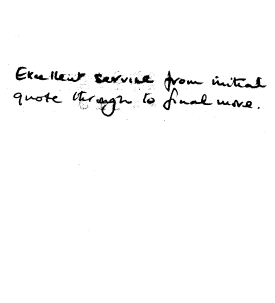 Excellent service from initial
quote through to final move.